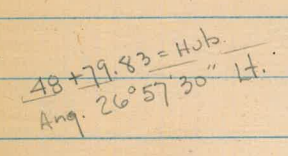 48+79.83 = Hub.
Ang. 26°57'30" Lt.